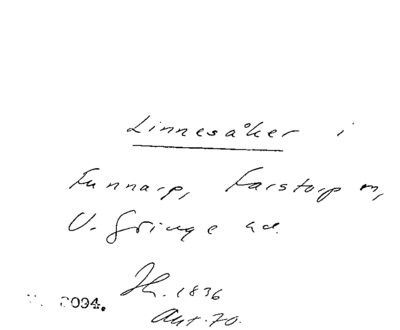 Linnesåker i
Funnarp, Farstorp m,
V. Göinge hd.
Jh. 1836
Akt. 70.
2094.